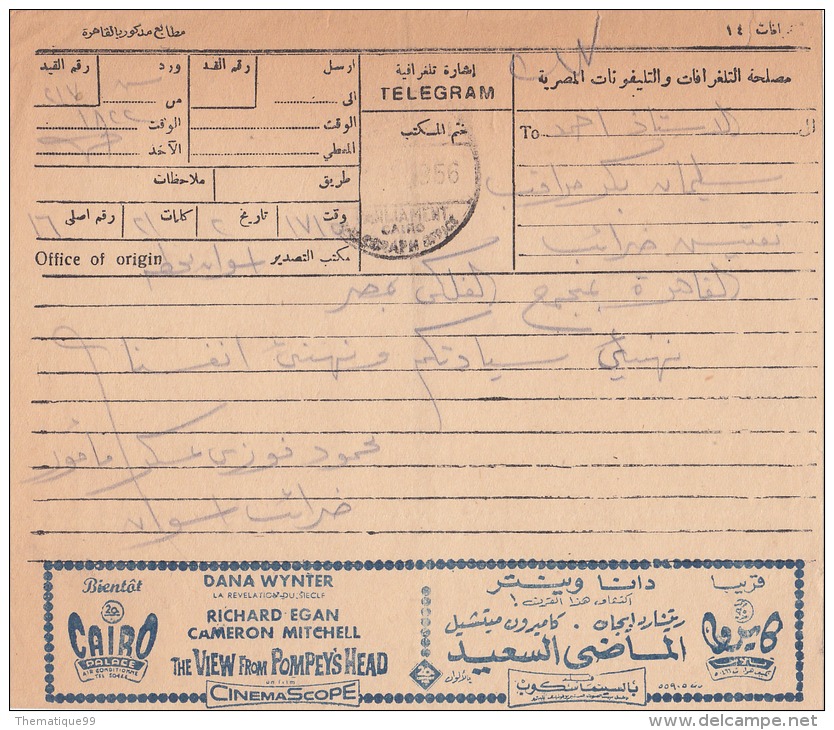 مطابع مدكور بالقاهرة
١٤
مصلحة التلغرافات والتليفونات المصرية
إشارة تلغرافية
TELEGRAM
ختم المكتب
ارسل
رقم القيد
ورد
رقم القيد
الى
من ٢١٧
الوقت
الوقت ١٨٢٢
المعطي
الآخذ
طريق
ملاحظات
وقت ١٧١
تاريخ ٢
كلمات ٢١
رقم اصلى ١٦
Office of origin
مكتب التصدير اسوان
To الاستاذ احمد الى
سليمان بكر مراقب
تفتيش ضرائب
القاهرة بمصر
1956
PARLIAMENT
CAIRO
TELEGRAPH OFFICE
نهنئ سيادتكم ونهنئ انفسنا
محمود فوزى عسكر مأمور
ضرائب اسوان
Bientôt
20th
CAIRO
PALACE
AIR CONDITIONNE
DANA WYNTER
LA REVELATION DU SIECLE
RICHARD EGAN
CAMERON MITCHELL
THE VIEW FROM POMPEY'S HEAD
un film
CINEMASCOPE
دانا وينتر
اكتشاف هذا القرن !
ريتشارد ايجان . كاميرون ميتشيل
الماضى السعيد
بالألوان
بالسينما سكوب
قريبا
كايرو
بالاس
Thematique99
www.delcampe.net